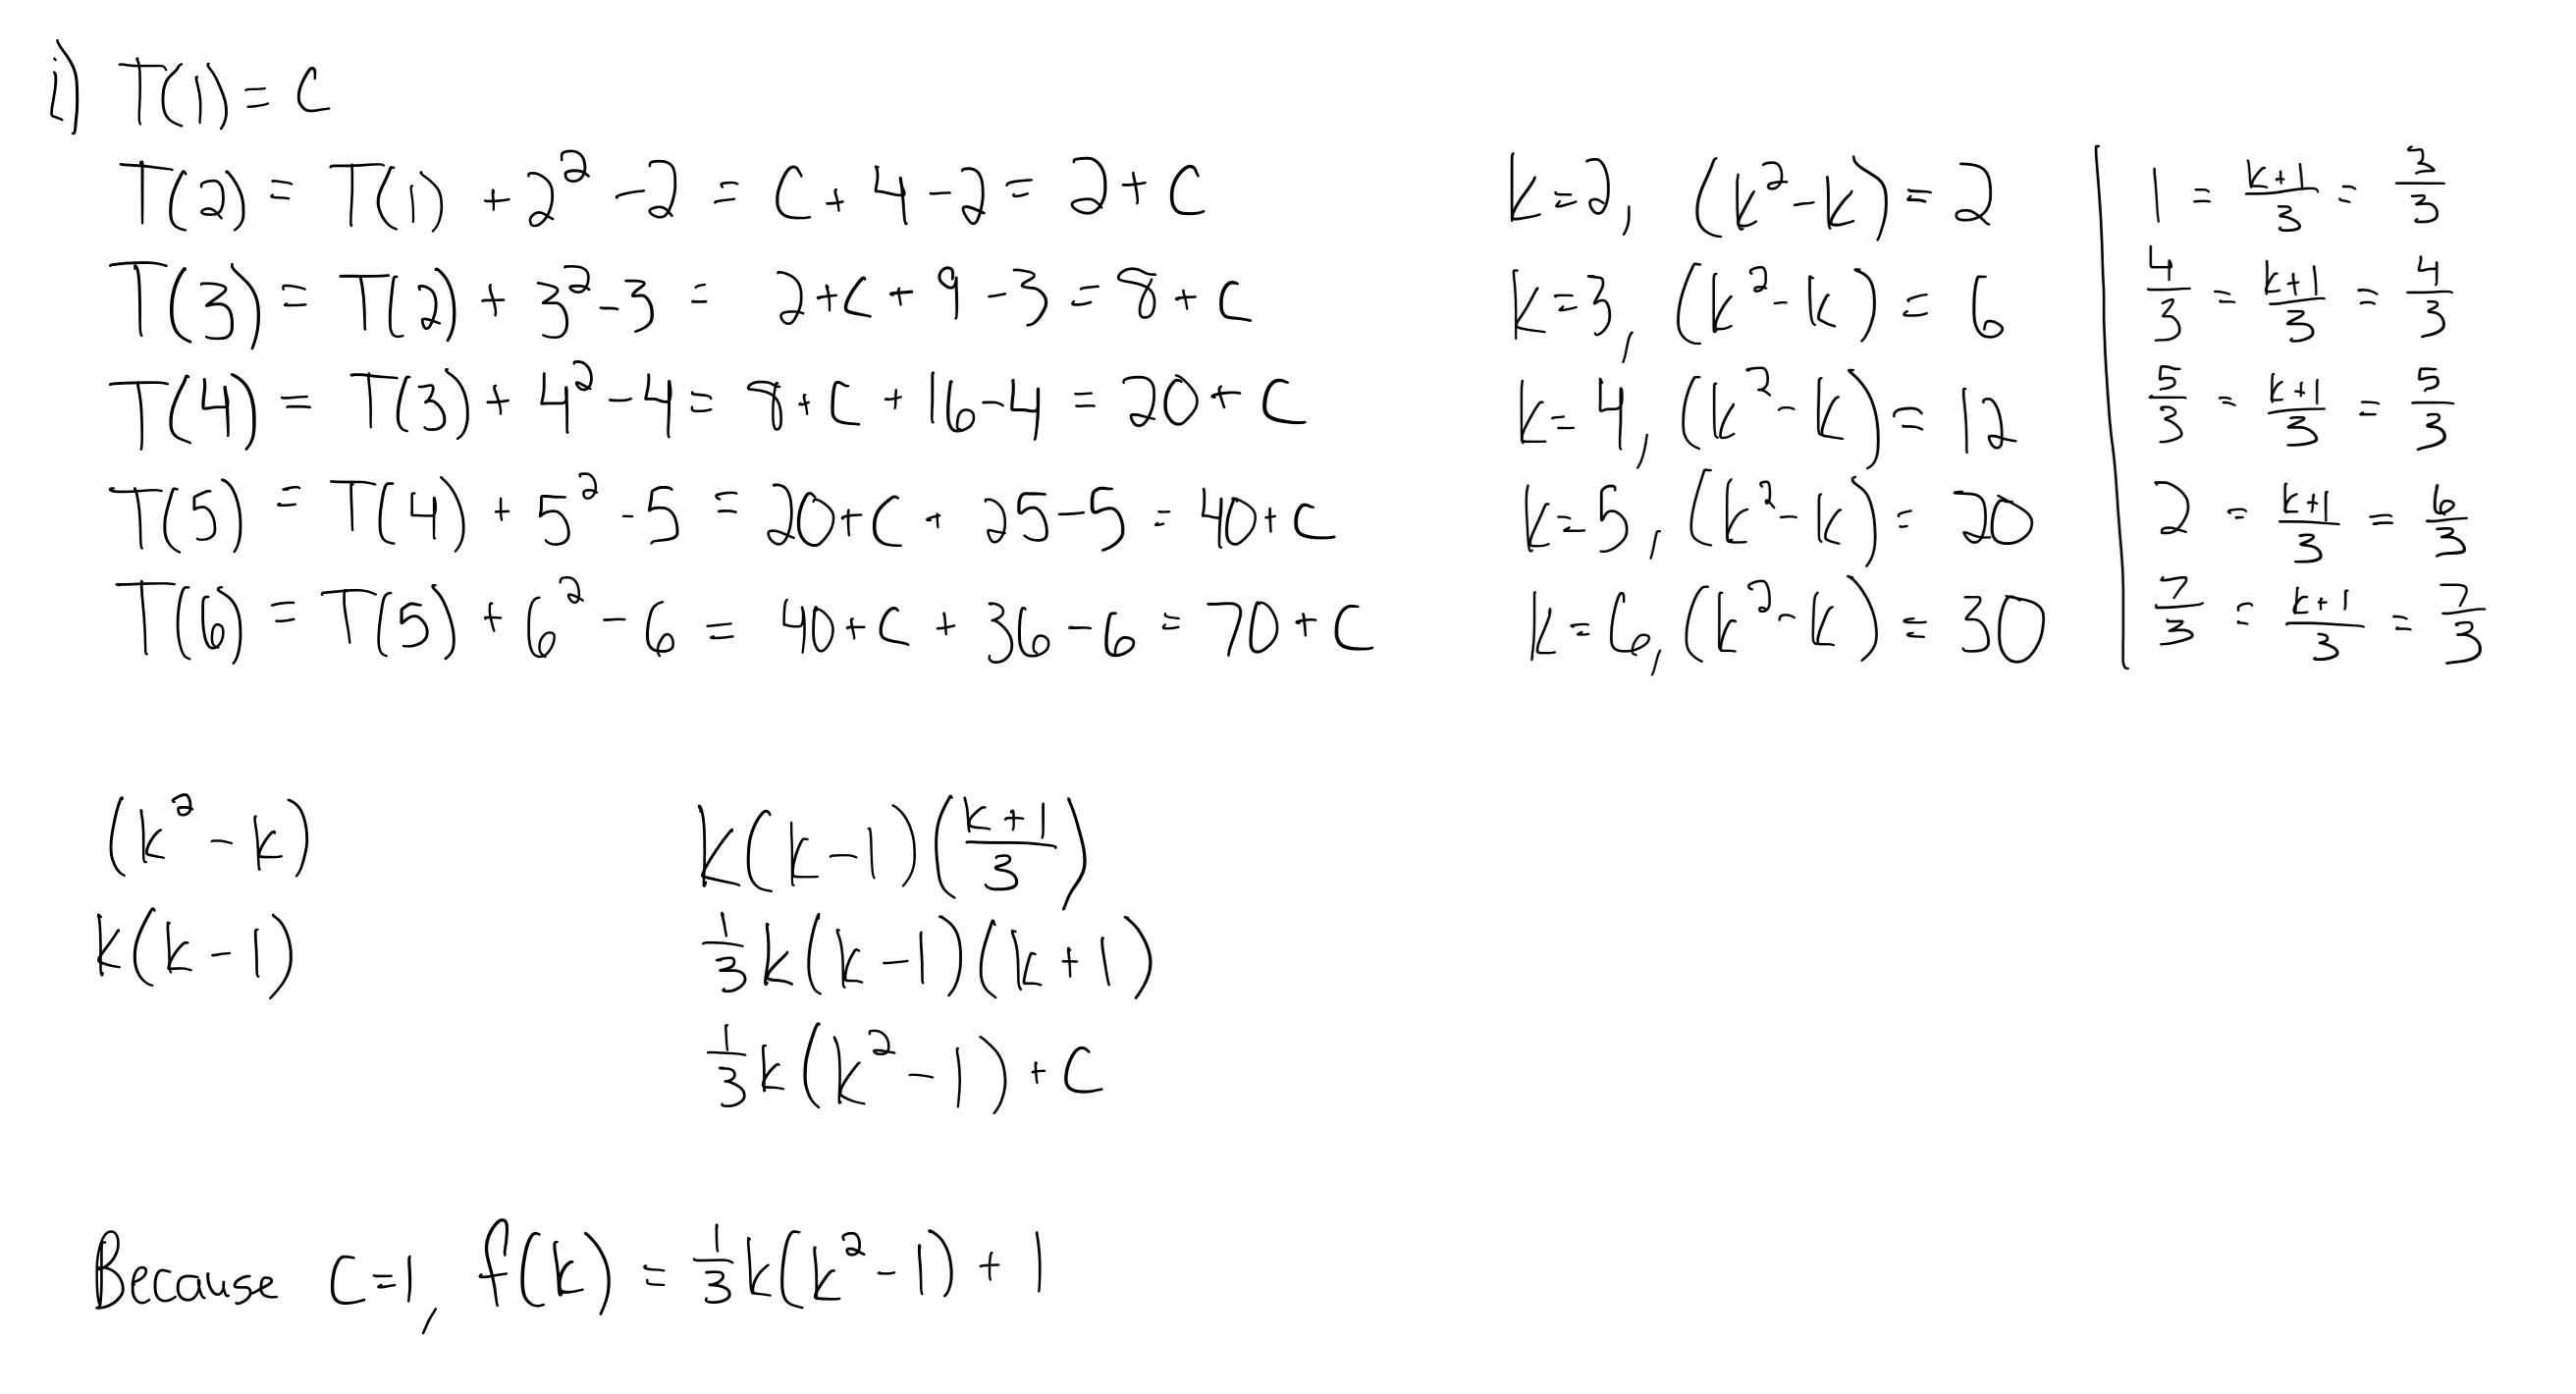 i) T(1) = C
T(2) = T(1) + 2² - 2 = C + 4 - 2 = 2 + C
T(3) = T(2) + 3² - 3 = 2 + C + 9 - 3 = 8 + C
T(4) = T(3) + 4² - 4 = 8 + C + 16 - 4 = 20 + C
T(5) = T(4) + 5² - 5 = 20 + C + 25 - 5 = 40 + C
T(6) = T(5) + 6² - 6 = 40 + C + 36 - 6 = 70 + C
k=2, (k²-k) = 2 | 1 = (k+1)/3 = 3/3
k=3, (k²-k) = 6 | 4/3 = (k+1)/3 = 4/3
k=4, (k²-k) = 12 | 5/3 = (k+1)/3 = 5/3
k=5, (k²-k) = 20 | 2 = (k+1)/3 = 6/3
k=6, (k²-k) = 30 | 7/3 = (k+1)/3 = 7/3
(k² - k)
k(k - 1)
k(k-1)((k+1)/3)
1/3 k(k-1)(k+1)
1/3 k(k² - 1) + C
Because C=1, f(k) = 1/3 k(k² - 1) + 1